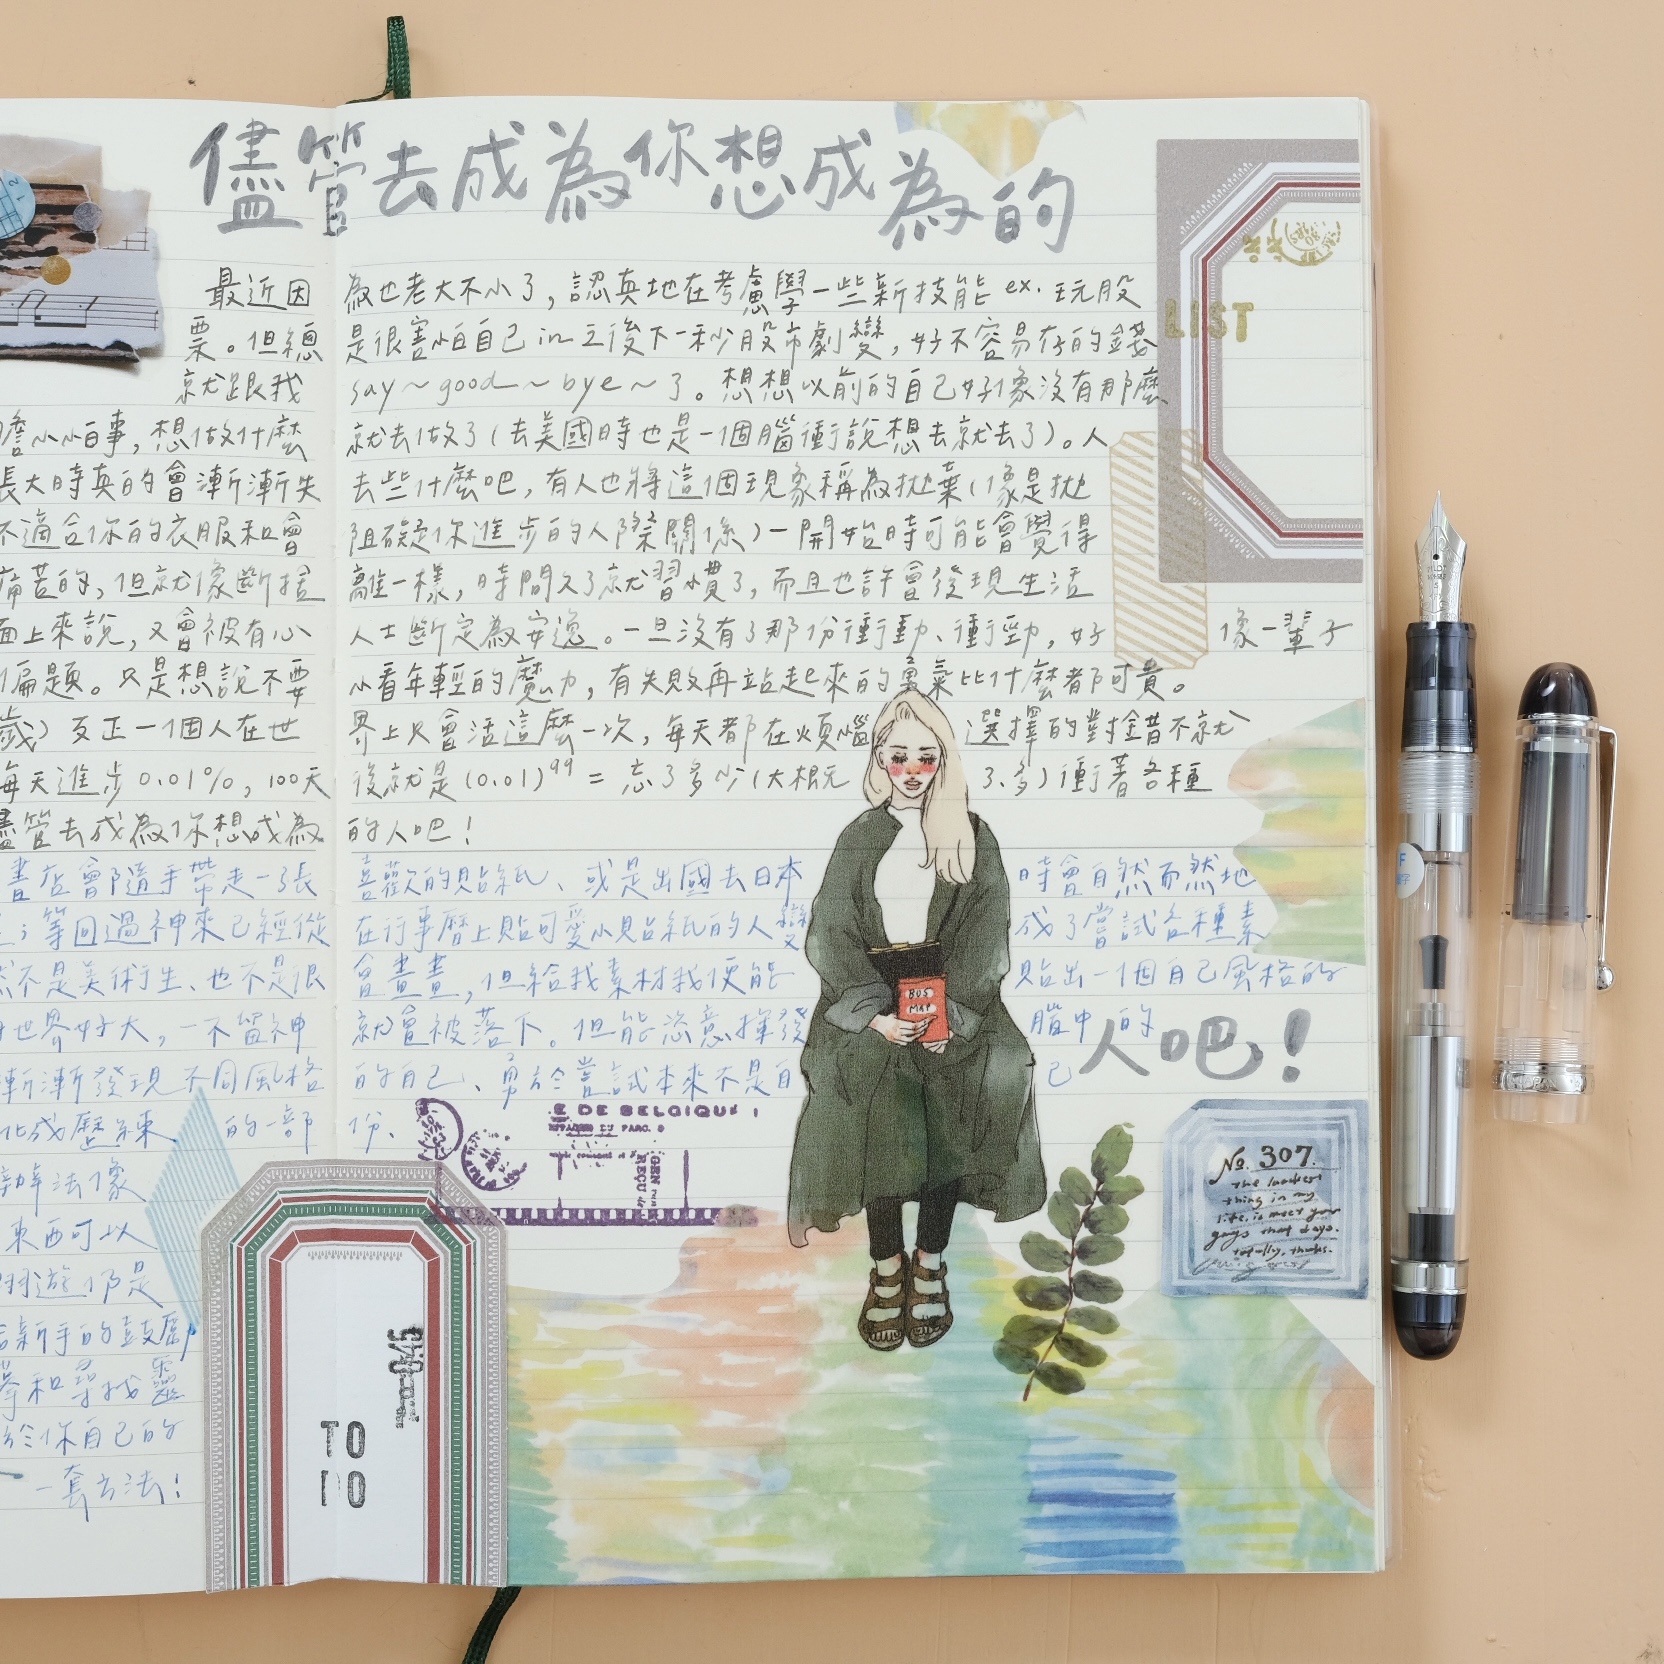 儘管去成為你想成為的
最近因為也老大不小了，認真地在考慮學一些新技能 ex. 玩股
票。但總是很害怕自己 in 之後下一秒股市劇變，好不容易存的錢
就跟我 say~good~bye~了。想想以前的自己好像沒有那麼
膽小小百事，想做什麼就去做了(去美國時也是一個腦衝說想去就去了)。人
長大時真的會漸漸失去些什麼吧，有人也將這個現象稱為拋棄(像是拋
不適合你的衣服和會阻礙你進步的人際關係)一開始時可能會覺得
痛苦的，但就像斷捨離一樣，時間久了就習慣了，而且也許會發現生活
面上來說，又會被有心人士斷定為安逸。一旦沒有了那份衝動、衝勁，好像一輩子
偏題。只是想說不要小看年輕的魔力，有失敗再站起來的勇氣比什麼都可貴。
歲) 反正一個人在世界上只會活這麼一次，每天都在煩惱選擇的對錯不就
每天進步 0.01%，100天後就是 (0.01)^99 = 忘了多少(大概元3.多)衝著各種
儘管去成為你想成為的人吧！
書店會隨手帶走一張喜歡的貼紙、或是出國去日本時會自然而然地
等回過神來已經從在行事曆上貼可愛小貼紙的人變成了嘗試各種素
不是美術生、也不是很會畫畫，但給我素材我便能貼出一個自己風格的
世界好大，一不留神就會被落下。但能恣意揮發腦中的
漸漸發現不同風格的自己、勇於嘗試本來不是自己
化成歷練的一部份、
人吧！
辦法像
東西可以
遊仍是
新手的鼓勵
和尋找靈
於你自己的
一套方法！
LIST
E DE BELGIQUE
BUS
MAP
No. 307.
thing in my
life, is meet you
guys that days.
totally, thanks.
TO
10
F